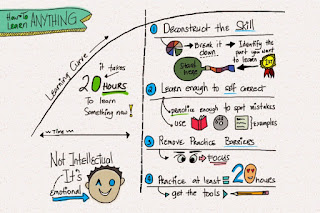 How To
Learn ANYTHING
Learning Curve
it takes
20 HOURS
To learn
Something new!
Time
Not Intellectual
It's
Emotional
1 Deconstruct the Skill
Break it down.
Identify the part you want to learn
Start here
1st
2 Learn enough to self correct
practice enough to spot mistakes
use
examples
3 Remove Practice Barriers
FOCUS
4 Practice at least 20 hours
get the tools